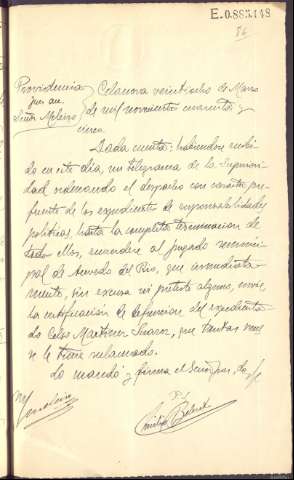 E.0.885,148
86
Providencia
Juez Sr.
Señor Moleiro
Celanova veintiocho de Marzo
de mil novecientos cuarenta y
cinco.
Dada cuenta; habiendose recibi-
do en este día, un telegrama de la Superiori-
dad, ordenando el despacho con caracter pre-
ferente de los expedientes de responsabilidades
politicas, hasta la completa terminacion de
todos ellos, al juzgado munici-
pal de Acevedo del Rio, que inmediata-
mente, sin excusa ni pretexto alguno, envie
la certificacion de defuncion del expedienta-
do Celso Martinez Suarez, que tantas veces
se le tiene reclamado.
Lo mandó y firma el Señor Juez, doy fe